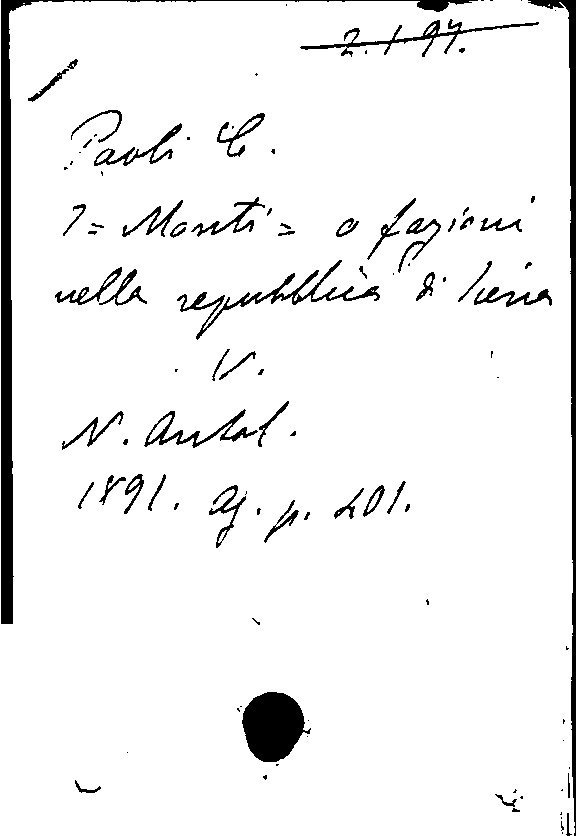 2.1.97.
Paoli C.
I = Monti = o fazioni
nella repubblica di Siena
V.
N. Antol.
1891. Ag. p. 401.